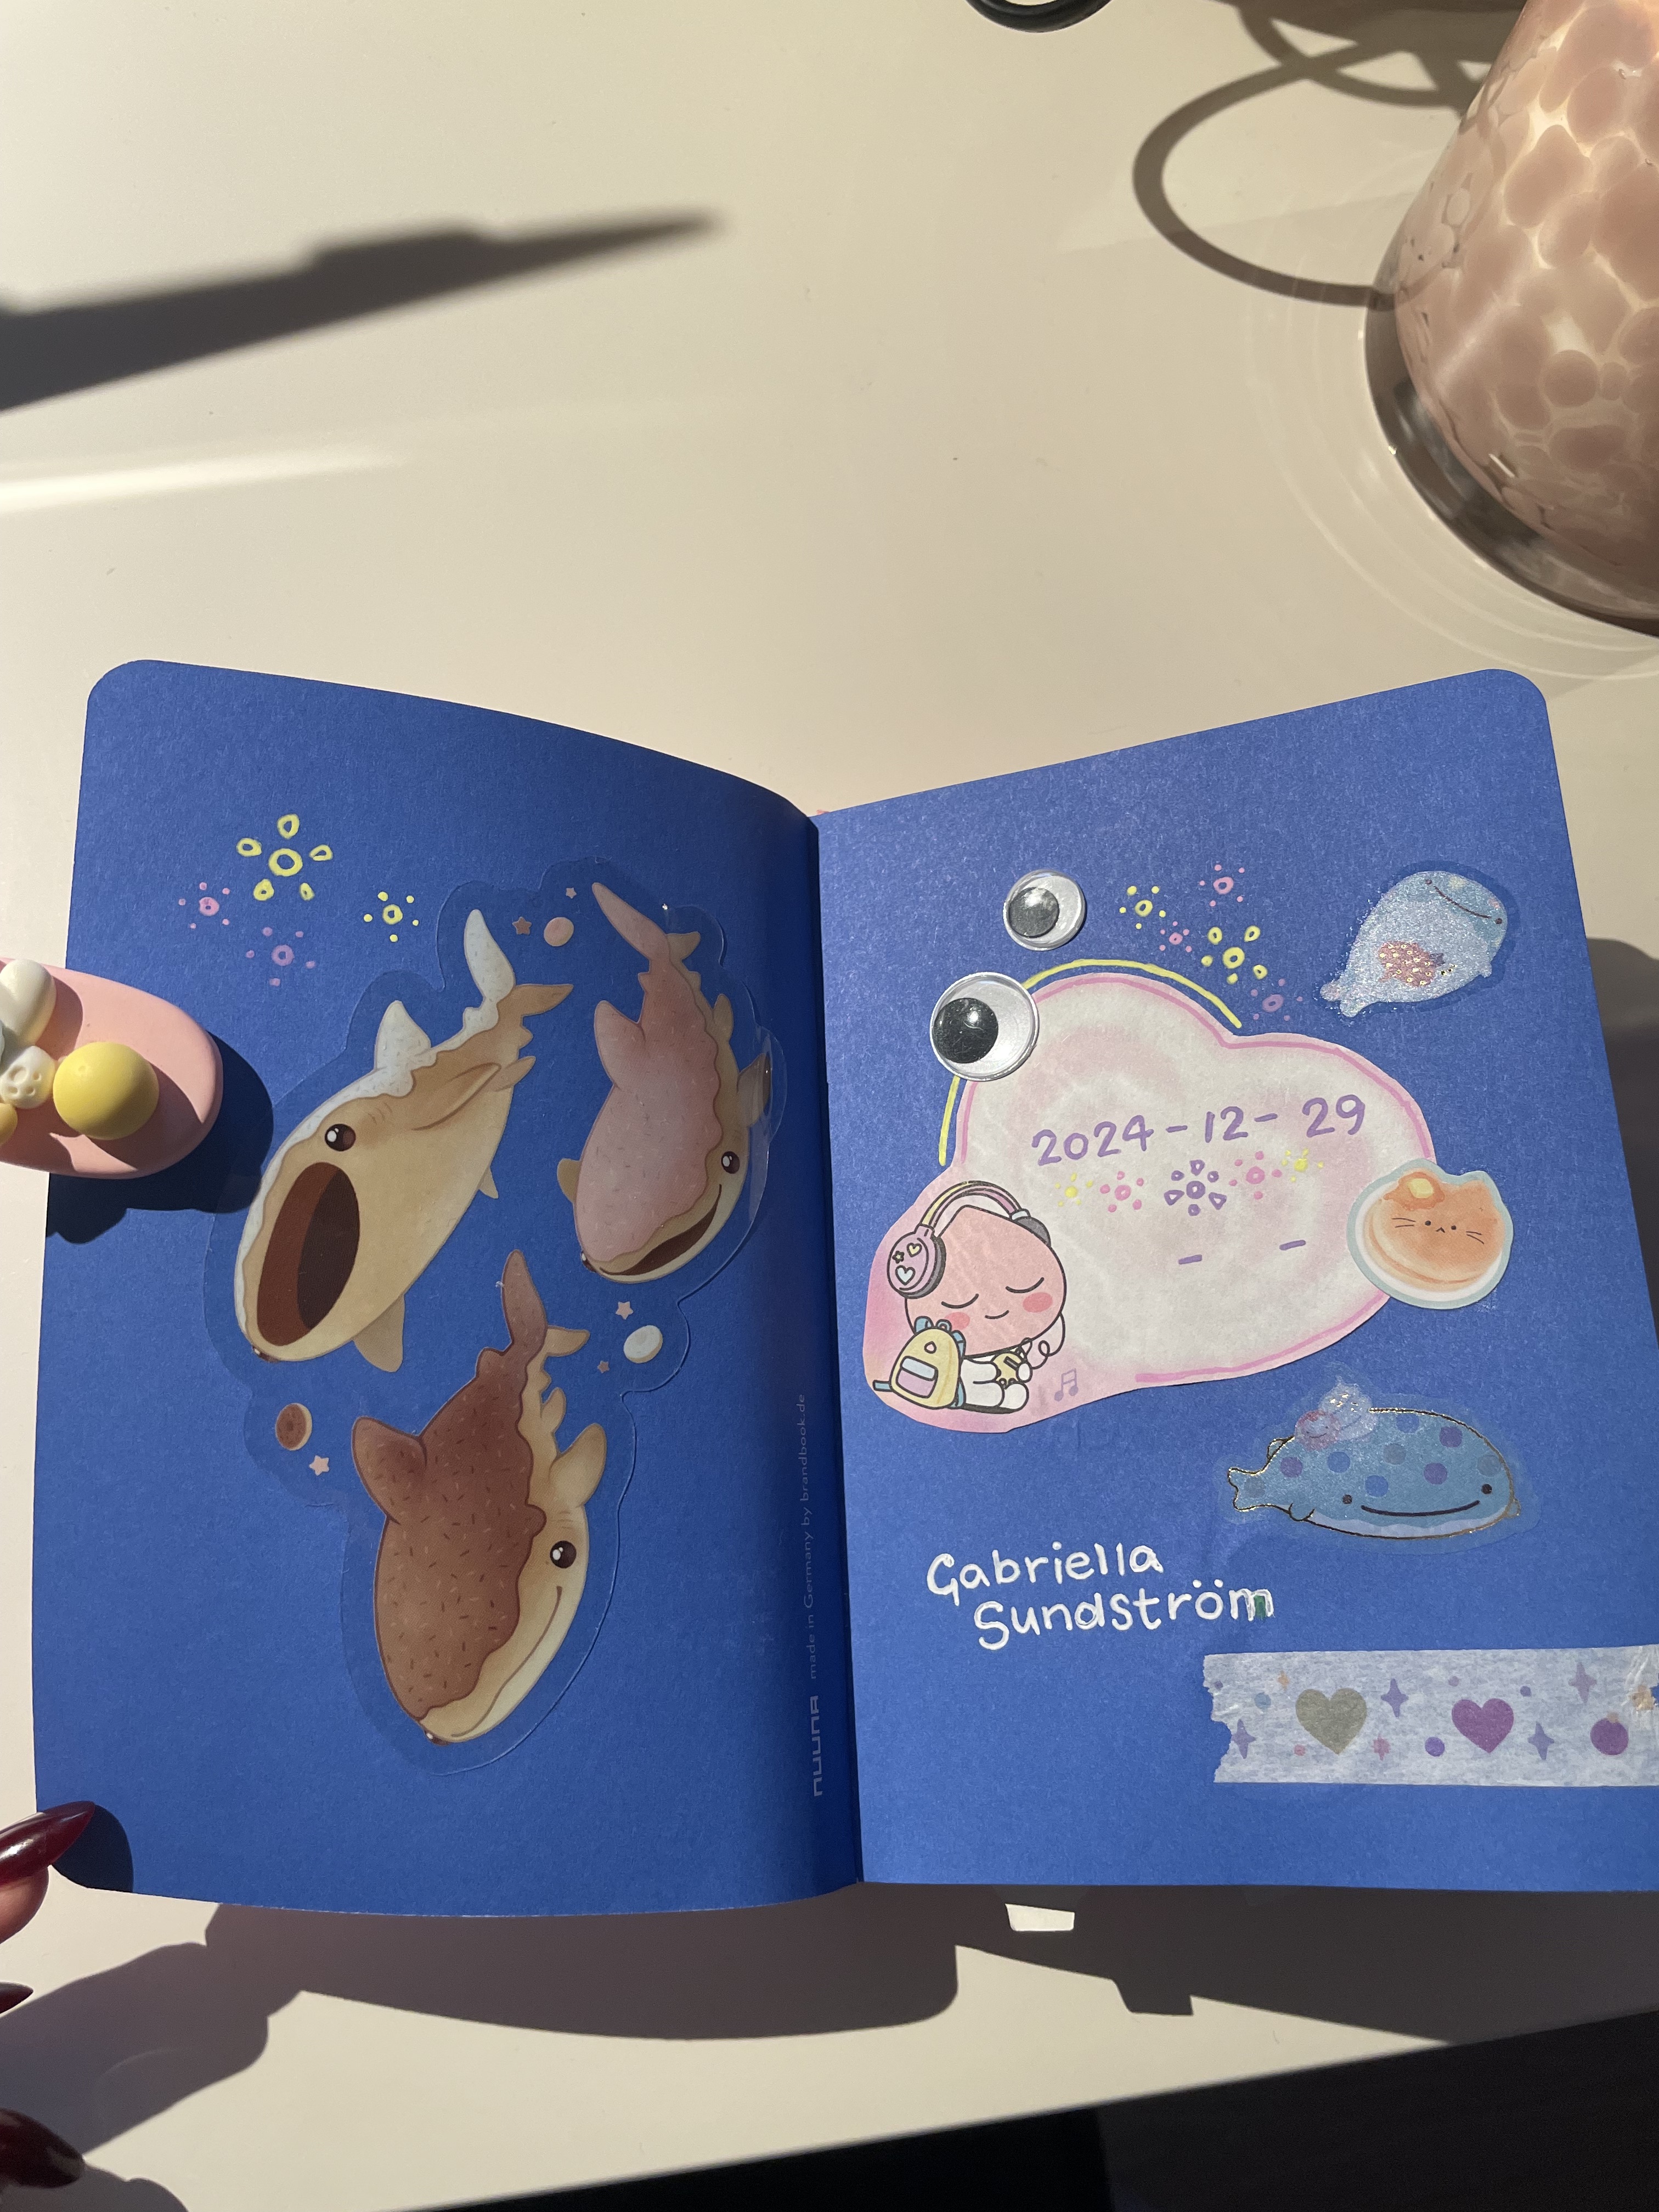 nuuna made in Germany by brandbook.de
2024-12-29
- -
Gabriella
Sundström